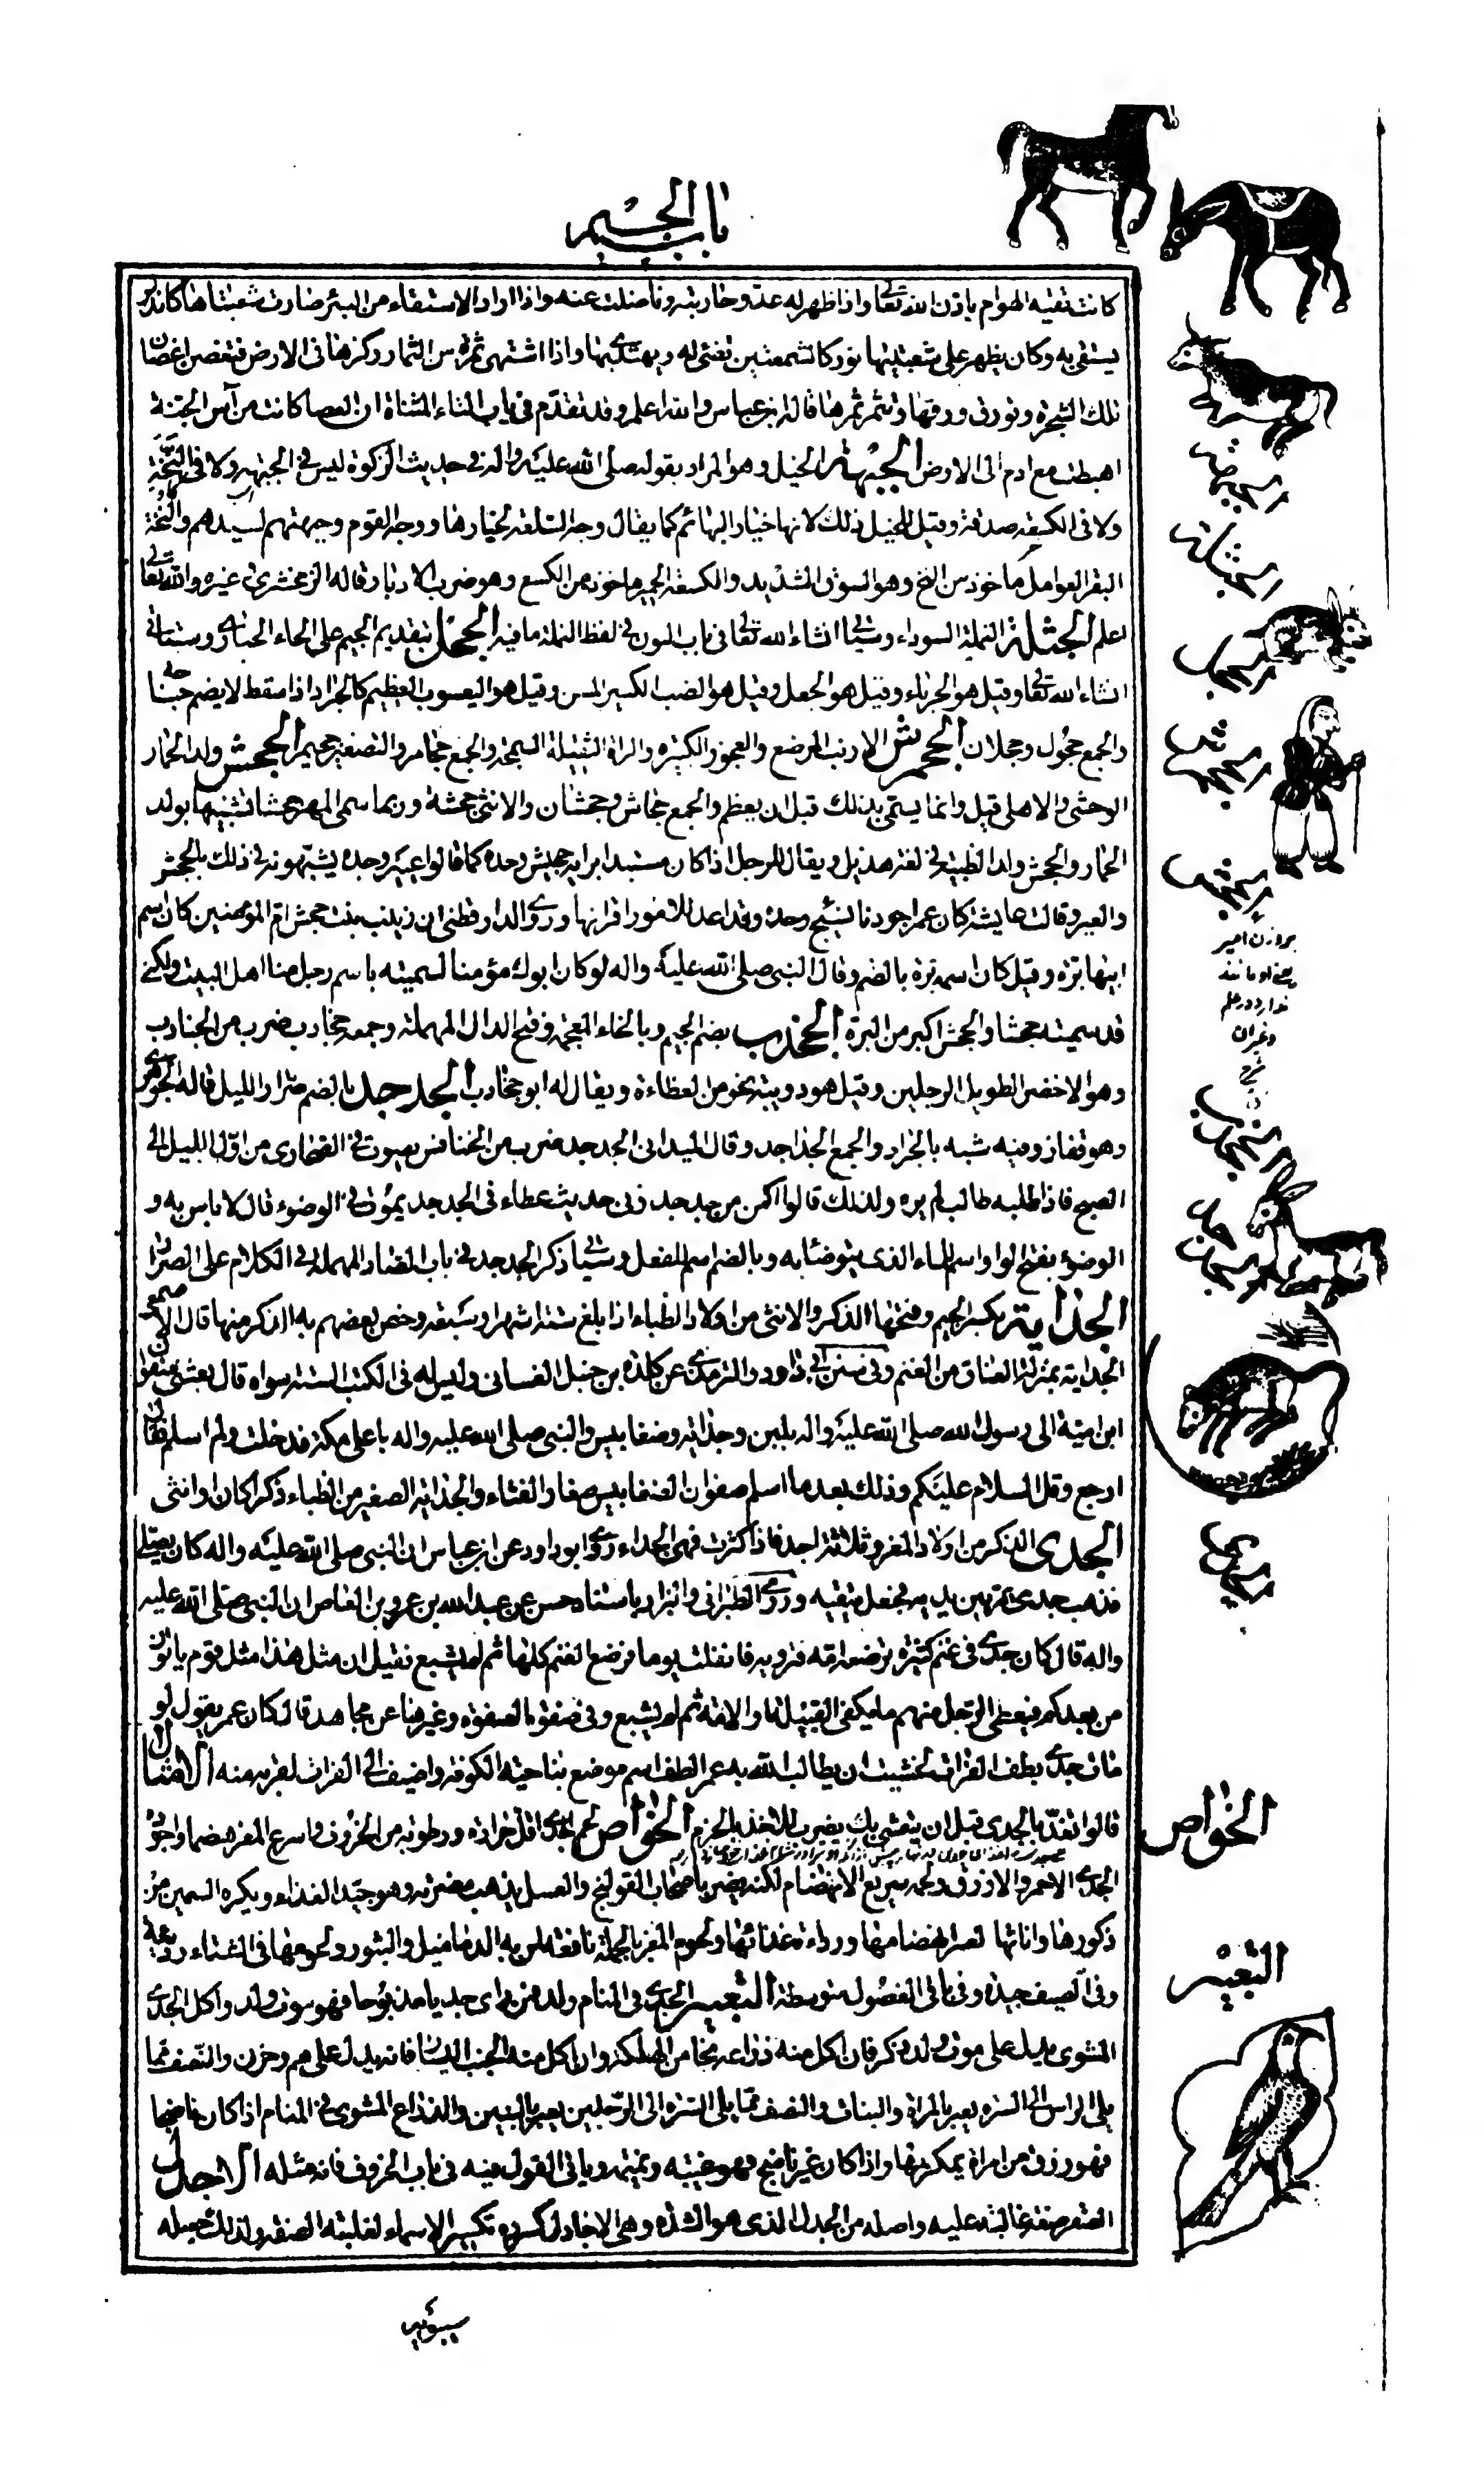 باب الجيم
كانت تقيه الهوام باذن الله تعالى واذا ظهر له عدو حاربته وناضلت عنه واذا اراد الاستقاء من البئر صارت شعبتاها كالدلو
يستقى به وكان يظهر على شعبتيها نور كالشمعتين تضئى له ويهتدى بها واذا اشتهى ثمرة من الثمار ركزها فى الارض فتغصن اغصان
تلك الشجرة وتورق ورقها وتثمر ثمرها قاله ابن عباس والله اعلم وقد تقدم فى باب الثاء المثناة ان العصا كانت من آس الجنة
اهبطت مع ادم الى الارض الجبهة الخيل وهو المراد بقوله صلى الله عليه واله فى حديث الزكوة ليس فى الجبهة ولا فى النخة
ولا فى الكسعة صدقة وقيل للخيل ذلك لانها خيار البهائم كما يقال وجه السلعة لخيارها ووجه القوم وجبهتهم لسيدهم والنخة
البقر العوامل مأخوذ من النخ وهو السوق الشديد والكسعة الحمير ماخوذ من الكسع وهو ضرب الادبار قاله الزمخشرى وغيره والله تعالى
اعلم الجثلة النملة السوداء وسياتى انشاء الله تعالى فى باب النون فى لفظ النملة ما فيه الجحل بتقديم الجيم على الحاء الحبارى وستاتى
انشاء الله تعالى وقيل هو الحرباء وقيل هو الجعل وقيل هو الضب الكبير المسن وقيل هو اليعسوب العظيم كالجراد اذا سقط لا يضم جناحيه
والجمع جحول وجحلان الجحمرش الارنب المرضع والعجوز الكبيرة والمراة الثقيلة السمجة والجمع جحامر والتصغير جحيمر الجحش ولد الحمار
الوحشى والاهلى قيل وانما يسمى بذلك قبل ان يعظم والجمع جحاش وجحشان والانثى جحشة وربما سمى المهر جحشا تشبيها بولد
الحمار والجحش ولد الظبية فى لغة هذيل ويقال للرجل اذا كان مستبدا برايه جحيش وحده كما قالوا عيير وحده يشبهونه فى ذلك بالجحش
والعير وقالت عايشة كان عمر اجودنا نسيج وحده وقد اعد للامور اقرانها وروى الدارقطنى ان زينب بنت جحش ام المؤمنين كان اسم
ابيها برة وقيل كان اسمه برة بالضم وقال النبى صلى الله عليه واله لو كان ابوك مؤمنا لسميته باسم رجل منا اهل البيت ولكنى
قد سميته جحشا والجحش اكبر من البرة الجخدب بضم الجيم وبالخاء المعجمة وفتح الدال المهملة وجمعه جخادب ضرب من الجنادب
وهو الاخضر الطويل الرجلين وقيل هو دويبة نحو من العظاءة ويقال له ابو جخادب الجدجد بالضم صرار الليل قاله الجوهرى
وهو قفاز وفيه شبه بالجراد والجمع الجداجد وقال الميدانى الجدجد ضرب من الخنافس يصوت فى الصحارى من اول الليل الى
الصبح فاذا طلبه طالب لم يره ولذلك قالوا اكمن من جدجد وفى حديث عطاء فى الجدجد يموت فى الوضوء قال لا باس به و
الوضوء بفتح الواو اسم للماء الذى يتوضا به وبالضم اسم للفعل وسياتى ذكر الجدجد فى باب الصاد المهملة فى الكلام على الصرار
الجداية بكسر الجيم وفتحها الذكر والانثى من اولاد الظباء اذا بلغ ستة اشهر او سبعة وخص بعضهم به الذكر منها قال الاصمعى
الجداية بمنزلة العناق من الغنم وفى سنن ابى داود والترمذى عن كلدة بن حنبل الغسانى وليس له فى الكتب الستة سواه قال بعثنى صفوان
ابن امية الى رسول الله صلى الله عليه واله بلبن وجداية وضغابيس والنبى صلى الله عليه واله باعلى مكة فدخلت ولم اسلم فقال
ارجع وقل السلام عليكم وذلك بعد ما اسلم صفوان الضغابيس صغار القثاء والجداية الصغير من الظباء ذكرا كان او انثى
الجدى الذكر من اولاد المعز وثلاثة اجد فاذا كثرت فهى الجداء روى ابو داود عن ابن عباس ان النبى صلى الله عليه واله كان يصلى
فذهب جدى يمر بين يديه فجعل يتقيه وروى الطبرانى والبزار باسناد حسن عن عبد الله بن عمرو بن العاص ان النبى صلى الله عليه
واله قال كان جدى فى غنم كثيرة ترضعه امه فترويه فانفلت يوما فرضع الغنم كلها ثم لم يشبع فقيل ان مثل هذا مثل قوم ياتون
من بعدكم فيعطى الرجل منهم ما يكفى القبيلة او الامة ثم لم يشبع وفى صفوة الصفوة وغيرها عن مجاهد قال كان عمر يقول لو
مات جدى بطف الفرات لخشيت ان يطالب الله به عمر الطف اسم موضع بناحية الكوفة واضيف الى الفرات لقربه منه الامثال
قالوا تغد بالجدى قبل ان يتعشى بك يضرب للاخذ بالحزم الخواص لحم الجدى اقل حرارة ورطوبة من الخروف واسرع المعز هضما واجود
الجدى الاحمر والازرق ولحمه سريع الانهضام لكنه يضر باصحاب القولنج والعسل يذهب مضرته وهو جيد الغذاء ويكره السمين من
ذكورها واناثها لعسر انهضامها ورداءة غذائها ولحوم المعز بالجملة نافعة لمن به الدماميل والبثور ولحومها فى الشتاء ردية
وفى الصيف جيدة وفى باقى الفصول متوسطة التعبير الجدى فى المنام ولد فمن راى جديا مذبوحا فهو موت ولد واكل الجدى
المشوى يدل على موت ولد ذكر فان اكل منه ذراعه نجا من الهلكة وان اكل منه الجنب اليسار فانه يدل على هم وحزن والنصف مما
يلى الراس الى السرة يعبر بالمراة والبنات والنصف مما يلى السرة الى الرجلين يعبر بالبنين والذراع المشوى فى المنام اذا كان ناضجا
فهو رزق من امراة يمكر بها واذا كان غير ناضج فهو غيبة ونميمة وياتى القول فيه فى باب الخروف فانه مثله الاجدل
الصقر صفة غالبة عليه واصله من الجدل الذى هو الشدة وهى الاجادل كسروه تكسير الاسماء لغلبة الصفة ولذلك جعله
سيبويه
الجبهة
الجثلة
الجحل
الجحمرش
الجحش
بروزن امير
دغيران
شرح
الجخدب
الجدجد
الجداية
الجدى
الخواص
التعبير